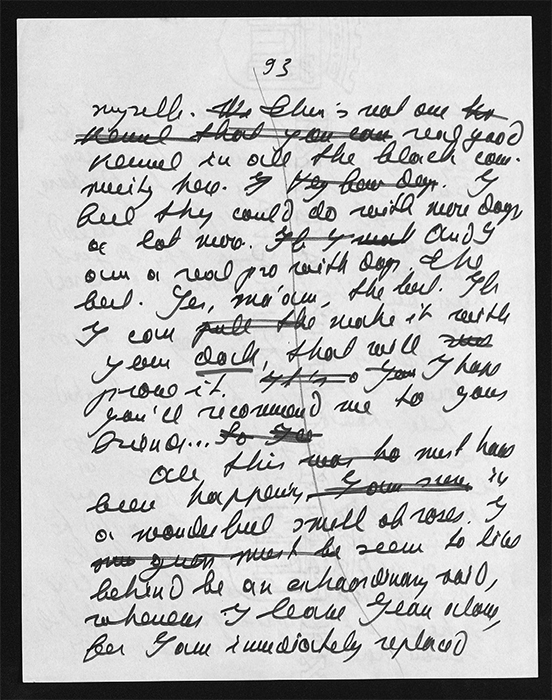 93
myself. The There's not one to
kennel that you can real good
kennel in all the black com-
munity here. I They bow dogs. I
bet they could do with more dogs
a lot more. If I want And I
am a real pro with dogs, the
best. Yes, ma'am, the best. If
I can pull the make it with
your dach, that will
prove it. It's o You I hope
you'll recommend me to your
friends... To
All this was to must have
been happening in
a wonderful smell of roses. I
must be seem to live
behind be an extraordinary void,
whenever I leave Jean alone,
for I am immediately replaced